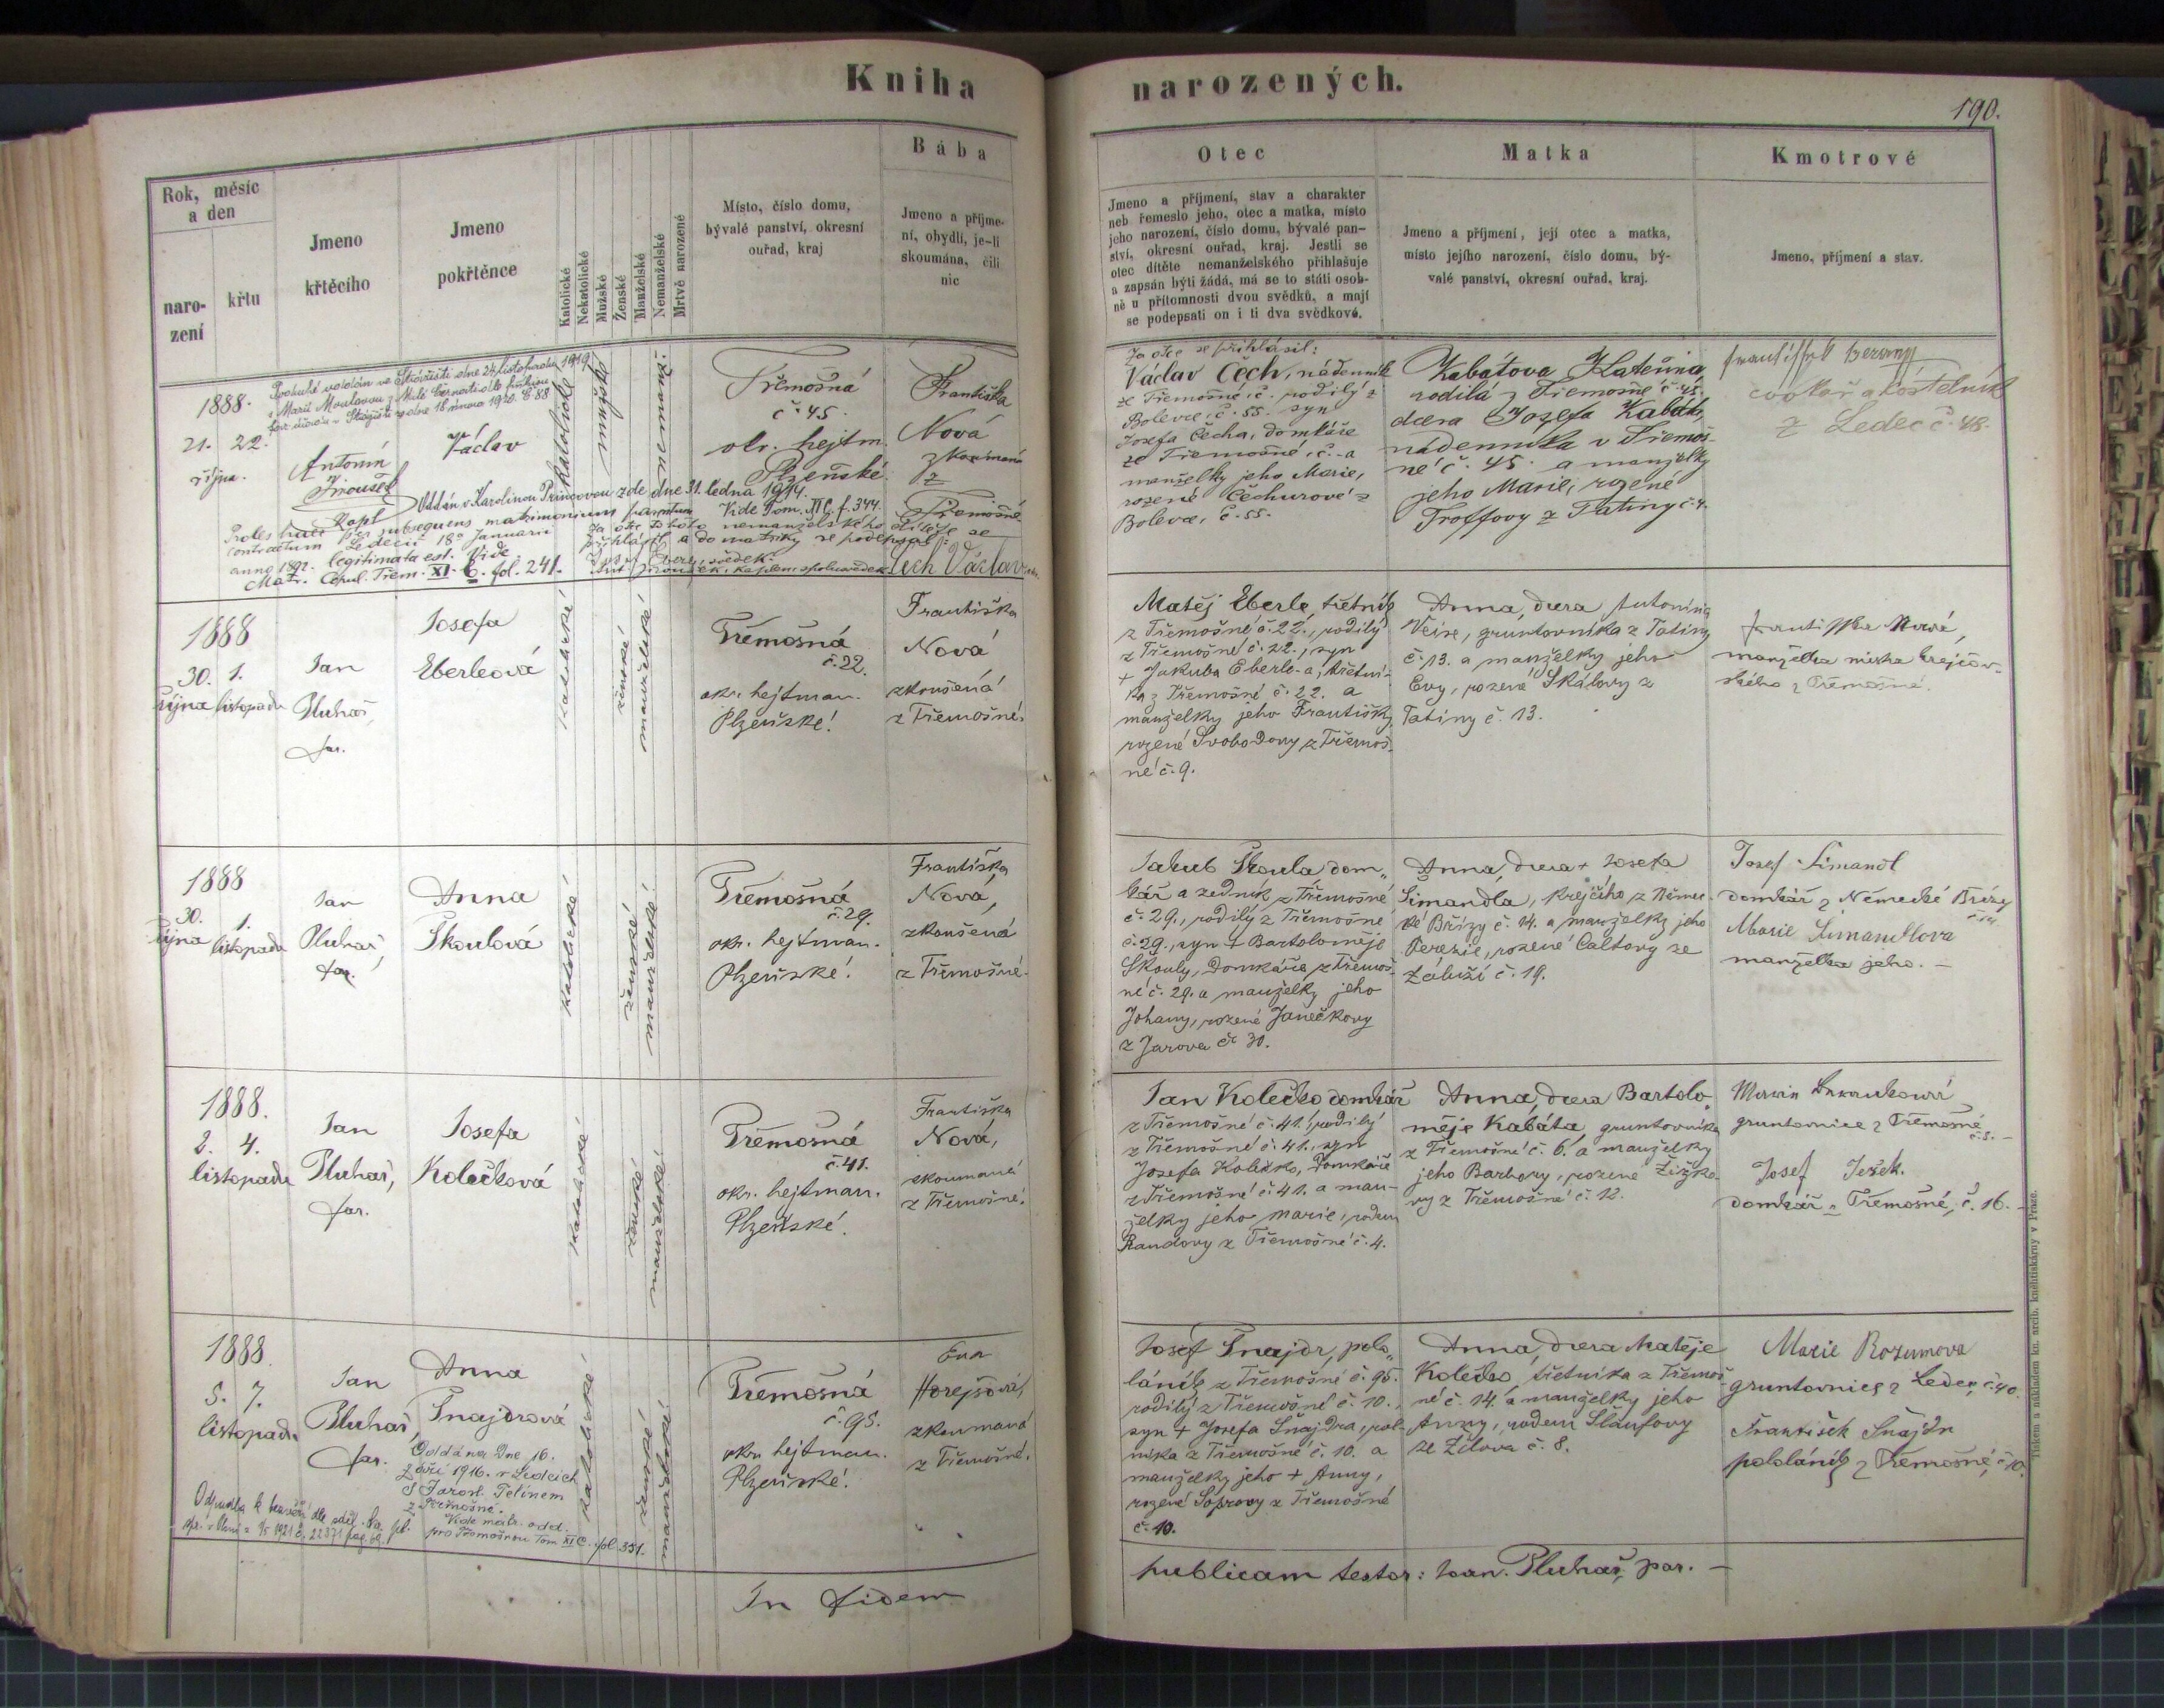 Kniha narozených.
190.
Rok, měsíc
a den
naro-
zení
křtu
Jmeno
křtěcího
Jmeno
pokřtěnce
Katolické
Nekatolické
Mužské
Ženské
Manželské
Nemanželské
Mrtvě narozené
Místo, číslo domu,
bývalé panství, okresní
ouřad, kraj
Bába
Jmeno a příjme-
ní, obydlí, je-li
skoumána, čili
nic
Otec
Jmeno a příjmení, stav a charakter
neb řemeslo jeho, otec a matka, místo
jeho narození, číslo domu, bývalé pan-
ství, okresní ouřad, kraj. Jestli se
otec dítěte nemanželského přihlašuje
a zapsán býti žádá, má se to státi osob-
ně u přítomnosti dvou svědků, a mají
se podepsati on i ti dva svědkové.
Matka
Jmeno a příjmení, její otec a matka,
místo jejího narození, číslo domu, bý-
valé panství, okresní ouřad, kraj.
Kmotrové
Jmeno, příjmení a stav.
1888.
21. 22.
října.
Antonín
Václav
katolické
mužské
nemanž.
Třemošná
č. 45.
okr. hejtm.
Plzeňské.
Františka
Nová
zkoumaná
z
Třemošné
Oddán s Karolinou Princovou zde dne 31. ledna 1914.
Vide Tom. XI C. f. 344.
Proles haec per subsequens matrimonium parentum
contractum Ledecii 18a Januarii
anno 1892. legitimata est. Vide
Matr. Copul. Třem. XI. C. fol. 241.
Za otce tohoto nemanželského dítěte se
přihlásil a do matriky se podepsal:
Čech Václav
Za otce se přihlásil:
Václav Čech, nádenník
ze Třemošné, č. rodilý z
Bolevce, č. 55. syn
Josefa Čecha, domkáře
ze Třemošné, č. - a
manželky jeho Marie,
rozené Čechurové z
Bolevce, č. 55.
Kabátova Kateřina
rodilá z Třemošné č. 45.
dcera Josefa Kabáta,
nádenníka v Třemoš-
né č. 45. a manželky
jeho Marie, rozené
Troffovy z Tatiny č. 4.
kostelník
z Ledec č. 48.
1888
30. 1.
října listopadu
Jan
Pluhař,
far.
Josefa
Eberleová
katolické
ženské
manželské
Třemošná
č. 22.
okr. hejtman.
Plzeňské.
Františka
Nová
zkoušená
z Třemošné.
Matěj Eberle, třetník
z Třemošné č. 22., rodilý
z Třemošné č. 22., syn
+ Jakuba Eberle-a, třetní-
ka z Třemošné č. 22. a
manželky jeho Františky
rozené Svobodovy z Třemoš-
né č. 9.
Anna, dcera Antonína
gruntovníka z Tatiny
č. 13. a manželky jeho
Evy, rozené Skálovy z
Tatiny č. 13.
Františka Nová,
manželka mistra krejčov-
ského z Třemošné.
1888
30. 1.
října listopadu
Jan
Pluhař,
far.
Anna
Škoulová
katolické
ženské
manželské
Třemošná
č. 29.
okr. hejtman.
Plzeňské.
Františka
Nová,
zkoušená
z Třemošné.
Jakub Škoula dom„
kář a zedník z Třemošné
č. 29., rodilý z Třemošné
č. 29., syn + Bartoloměje
Škouly, domkáře z Třemoš-
né č. 29. a manželky jeho
Johany, rozené Janečkovy
z Jarova č. 30.
Anna, dcera + Josefa
Šimandla, krejčího z Němec-
ké Břízy č. 14. a manželky jeho
Terezie, rozené Caltovy ze
Záluží č. 19.
Josef Šimandl
domkář z Německé Břízy
č. 14
Marie Šimandlova
manželka jeho. —
1888.
2. 4.
listopadu
Jan
Pluhař,
far.
Josefa
Kolečková
katolické
ženské
manželské
Třemošná
č. 41.
okr. hejtman.
Plzeňské.
Františka
Nová,
zkoumaná
z Třemošné.
Jan Kolečko domkář
z Třemošné č. 41., rodilý
z Třemošné č. 41., syn
Josefa Kolečko, domkáře
z Třemošné č. 41. a man-
želky jeho Marie, rodem
Randovy z Třemošné č. 4.
Anna, dcera Bartolo„
měje Kabáta, gruntovníka
z Třemošné č. 6. a manželky
jeho Barbory, rozené Žižko-
vy z Třemošné č. 12.
gruntovnice z Třemošné
č. 5. —
Josef Ježek.
domkář z Třemošné, č. 16. -
1888.
5. 7.
listopadu
Jan
Pluhař,
far.
Anna
Šnajdrová
Oddána dne 16.
září 1916. v Ledcích
s Jarosl. Telínem
z Třemošné.
Vide matr. odd.
pro Třemošnou Tom XI C. fol. 351.
katolické
ženské
manželské
Třemošná
č. 95.
okr. hejtman.
Plzeňské.
Eva
Hořejšová,
zkoumaná
z Třemošné.
Josef Šnajdr, polo„
láník z Třemošné č. 95.
rodilý z Třemošné č. 10.,
syn + Josefa Šnajdra, pol-
níka z Třemošné č. 10. a
manželky jeho + Anny,
rozené Šoprovy z Třemošné
č. 10.
Anna, dcera Matěje
Kolečko, třetníka z Třemoš-
né č. 14. a manželky jeho
Anny, rodem Šlaufovy
ze Žilova č. 8.
Marie Rozumova
gruntovnice z Ledec, č. 40.
František Šnajdr
pololáník z Třemošné, č. 10.
In fidem publicam testor: Joan. Pluhař, par. —
Tiskem a nákladem kn. arcib. knihtiskárny v Praze.